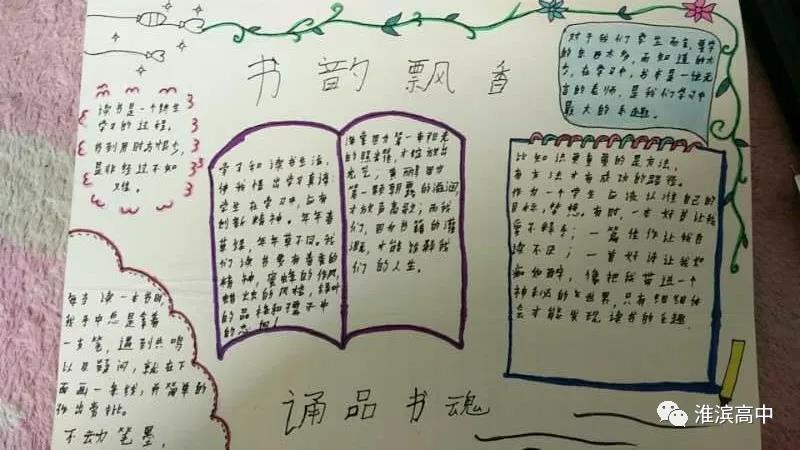 书韵飘香
对于我们学生而言,要学
的东西太多,而知道的太
少,在学习中,书本是一位无
言的老师,是我们学习中
最大的乐趣。
读书是一个终生
学习的过程。
书到用时方恨少,
是非经过不知
难。
学习和读书生活,
使我悟出学习真谛:
学生在学习中,应有
创新精神。年年春
草绿,年年草不同。我
们读书要有春蚕的
精神,蜜蜂的作风,
蜡烛的风格,绿叶
的品格和
的
第一束阳光
的照耀,才绽放出
光芒;黄鹂因为
第一颗朝露的滋润,
才放声高歌;而我
们,因为书籍的灌
溉,才能
们的人生。
比知识更重要的是方法,
有方法才有成功的路径。
作为一个学生应该认准自己的
目标,梦想。有时,一本好书让我
爱不释手;一篇佳作让我百
读不厌;一首好诗让我如
痴如醉,像把我带进一个
神秘的世界,只有细细体
会才能发现读书的乐趣.
每当读一本书时,
我手中总是拿着
一支笔,遇到共鸣
以及疑问,就在下
面画一条线,并简单的
作出赏批。
不动笔墨,
诵品书魂
淮滨高中